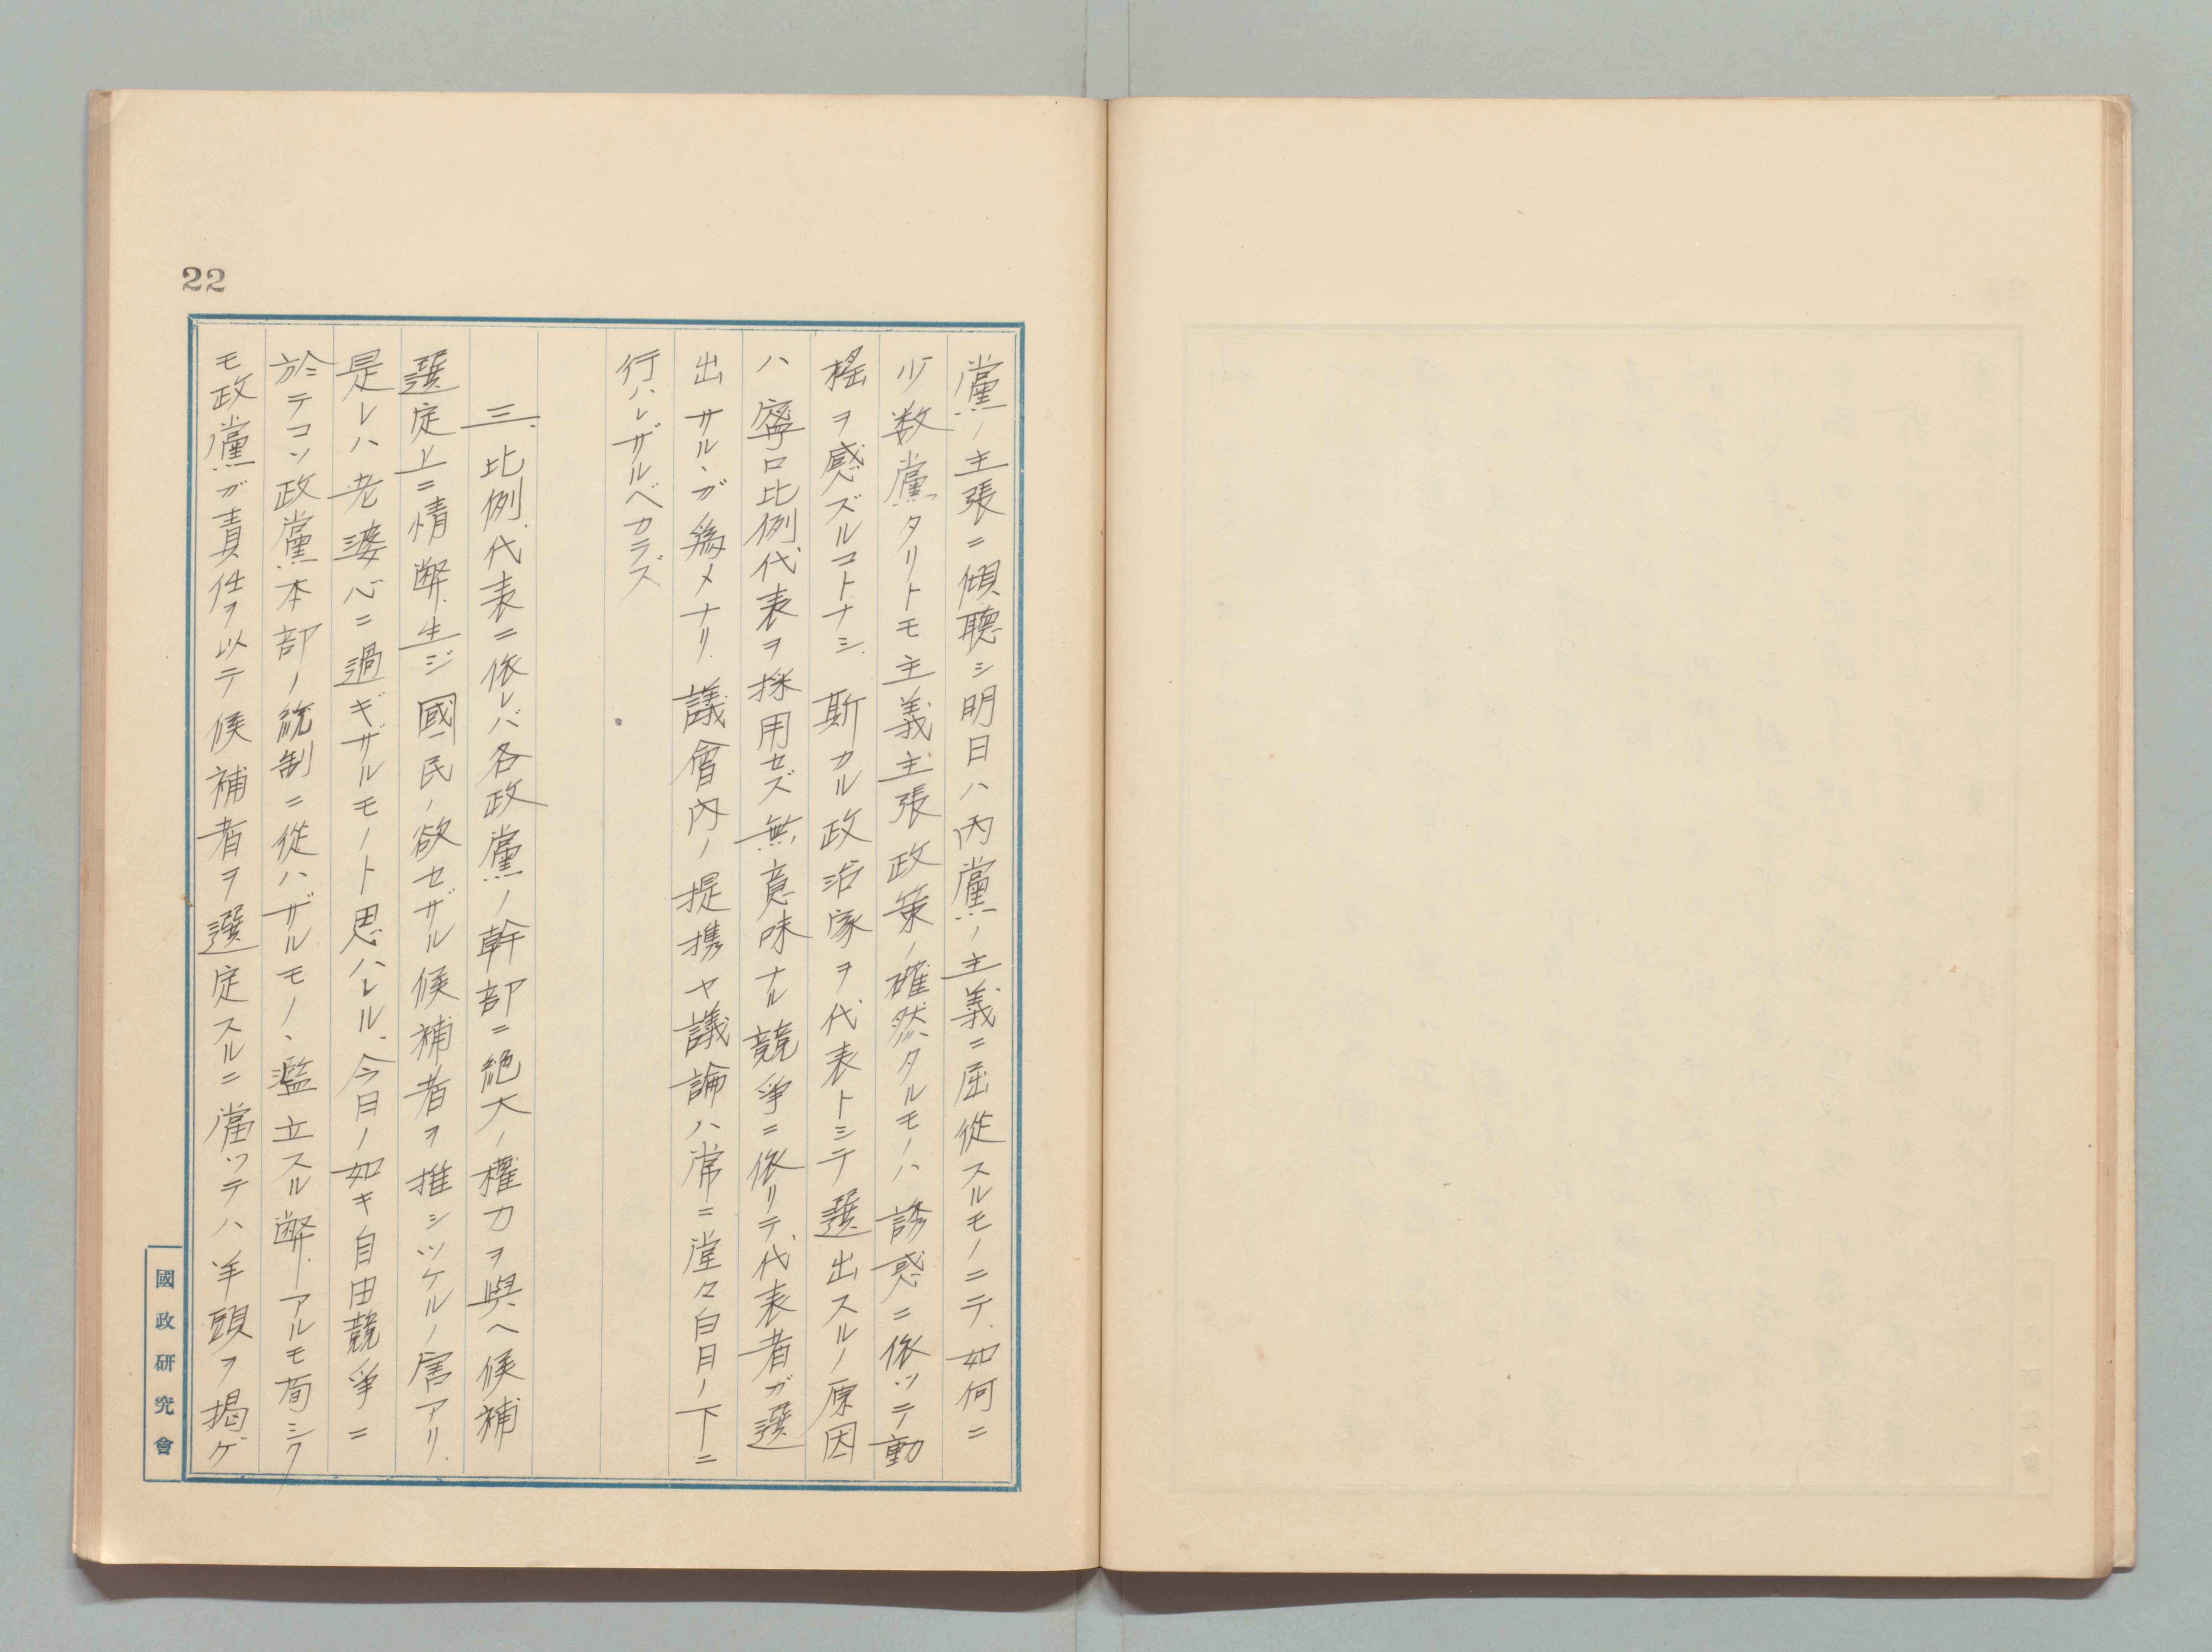 22
黨ノ主張ニ傾聽シ明日ハ丙黨ノ主義ニ屈從スルモノニテ如何ニ
少数黨タリトモ主義主張政策ノ確然タルモノハ誘惑ニ依ッテ動
搖ヲ感ズルコトナシ斯カル政治家ヲ代表トシテ選出スルノ原因
ハ寧ロ比例代表ヲ採用セズ無意味ナル競爭ニ依リテ代表者ガ選
出サルヽガ為メナリ議會内ノ提携ヤ議論ハ常ニ堂々白日ノ下ニ
行ハレザルベカラズ
三、比例代表ニ依レバ各政黨ノ幹部ニ絶大ノ權力ヲ與ヘ候補
選定上ニ情弊生ジ國民ノ欲セザル候補者ヲ推シツケルノ害アリ
是レハ老婆心ニ過ギザルモノト思ハレル、今日ノ如キ自由競爭ニ
於テコソ政黨本部ノ統制ニ從ハザルモノヽ濫立スル弊アルモ苟シク
モ政黨ガ責任ヲ以テ候補者ヲ選定スルニ當ッテハ羊頭ヲ掲ゲ
國政研究會